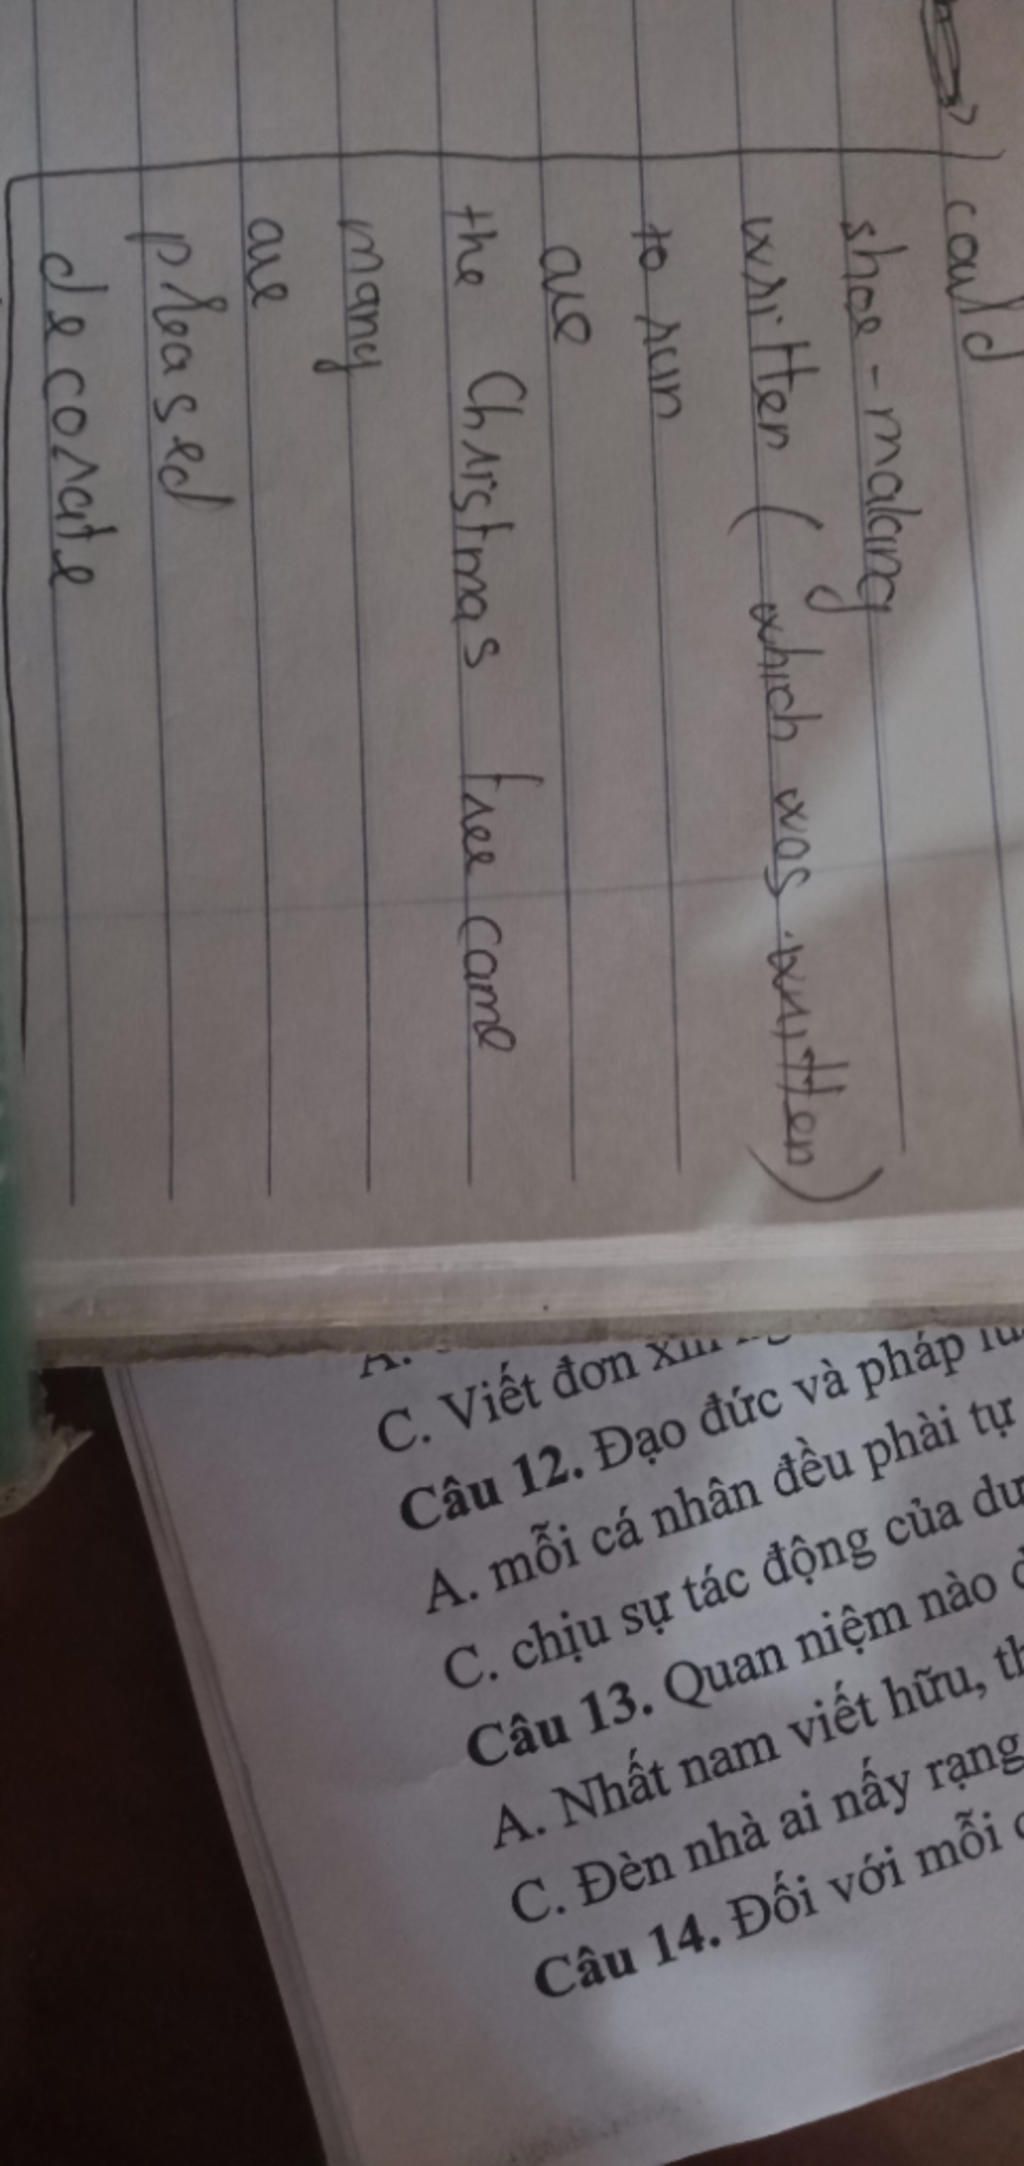 could
shoe-making
written (which was written)
to run
are
the Christmas tree came
many
are
pleased
decorate
A.
C. Viết đơn
Câu 12. Đạo đức và pháp
A. mỗi cá nhân đều phải tự
C. chịu sự tác động của
Câu 13. Quan niệm nào
A. Nhất nam viết hữu,
C. Đèn nhà ai nấy rạng
Câu 14. Đối với mỗi